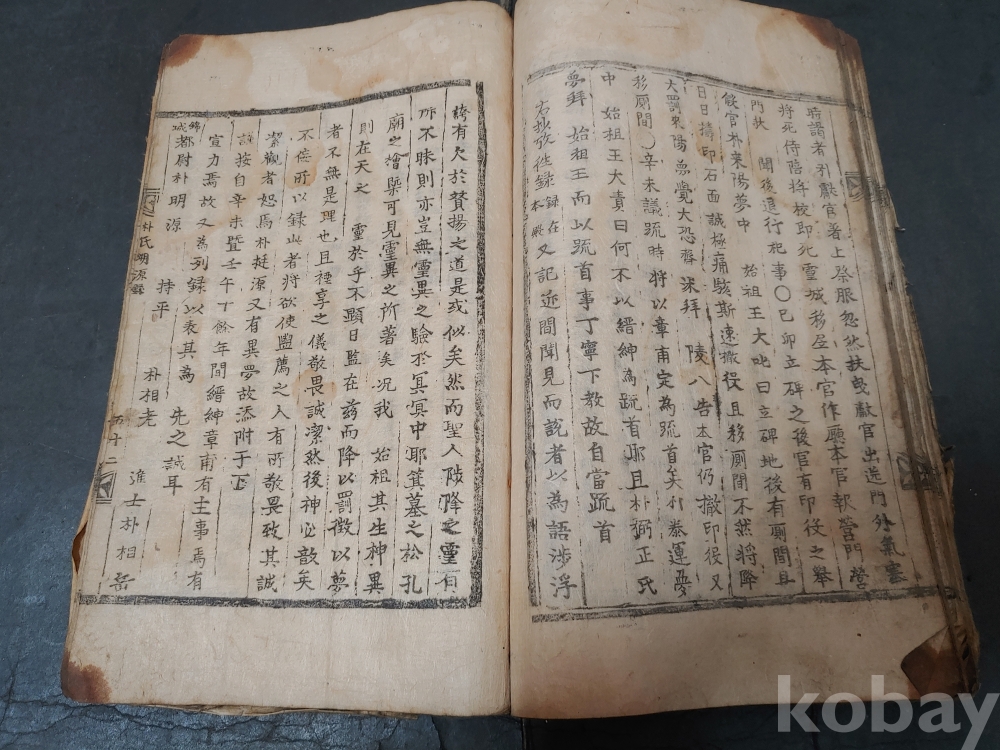 時謁者引獻官署上祭服忽然扶曳獻官出送門外氣塞
將死侍陪將校即死靈城移屋本官作廳本官報營門營
門狀 聞後退行祀事〇己卯立碑之後官有印役之擧
餕官朴来陽夢中 始祖王大叱曰立碑地後有厠間且
日日擣印石面誠極痛駭斯速撤役且移厠間不然將降
大罰来陽夢覺大恐齊沐拜 陵入告本官仍撤印役又
移厠間〇辛未議疏時將以章甫定為疏首矣朴泰運夢
中 始祖王大責曰何不以縉紳為疏首耶且朴弼正氏
夢拜 始祖王而以疏首事丁寧下教故自當疏首
右抄攷徃録録在本殿又記近間聞見而說者以為語涉浮
誇有欠於賛揚之道是或似矣然而聖人陟降之靈有
所不昧則亦豈無靈異之驗於冥冥中耶箕墓之松孔
廟之檜槩可見靈異之所著矣况我 始祖其生神異
則在天之 靈於乎不顯日監在玆而降以罰徵以夢
者不無是理也且禋享之儀敬畏誠潔然後神必歆矣
不侫所以録此者將欲使豊薦之人有所敬畏致其誠
潔觀者恕焉朴挺源又有異夢故添附于下
謹按自辛未暨壬午十餘年間縉紳章甫有主事焉有
宣力焉故又為列録以表其為 先之誠耳
錦城都尉朴明源 持平 朴相老 進士朴相岳
朴氏朔源録
五十二
kobay